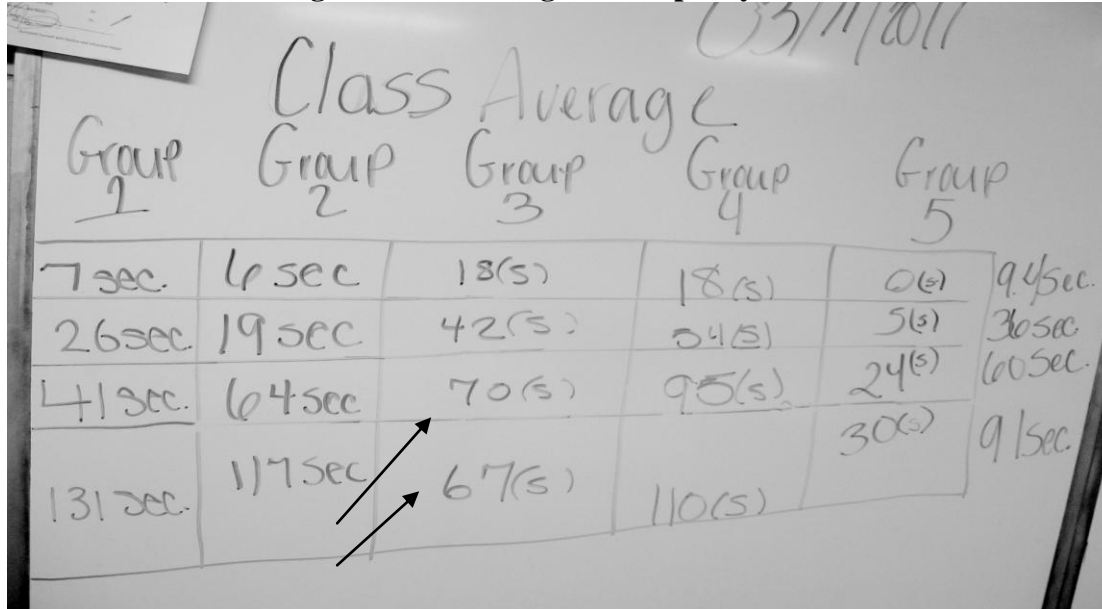 03/11/2011
Class Average
Group 1 Group 2 Group 3 Group 4 Group 5
7 sec. 6 sec 18(s) 18(s) 0(s) 9.4 sec.
26 sec. 19 sec 42(s) 54(s) 5(s) 36 sec
41 sec. 64 sec 70(s) 95(s) 24(s) 60 sec.
131 sec. 117 sec 67(s) 110(s) 30(s) 91 sec.